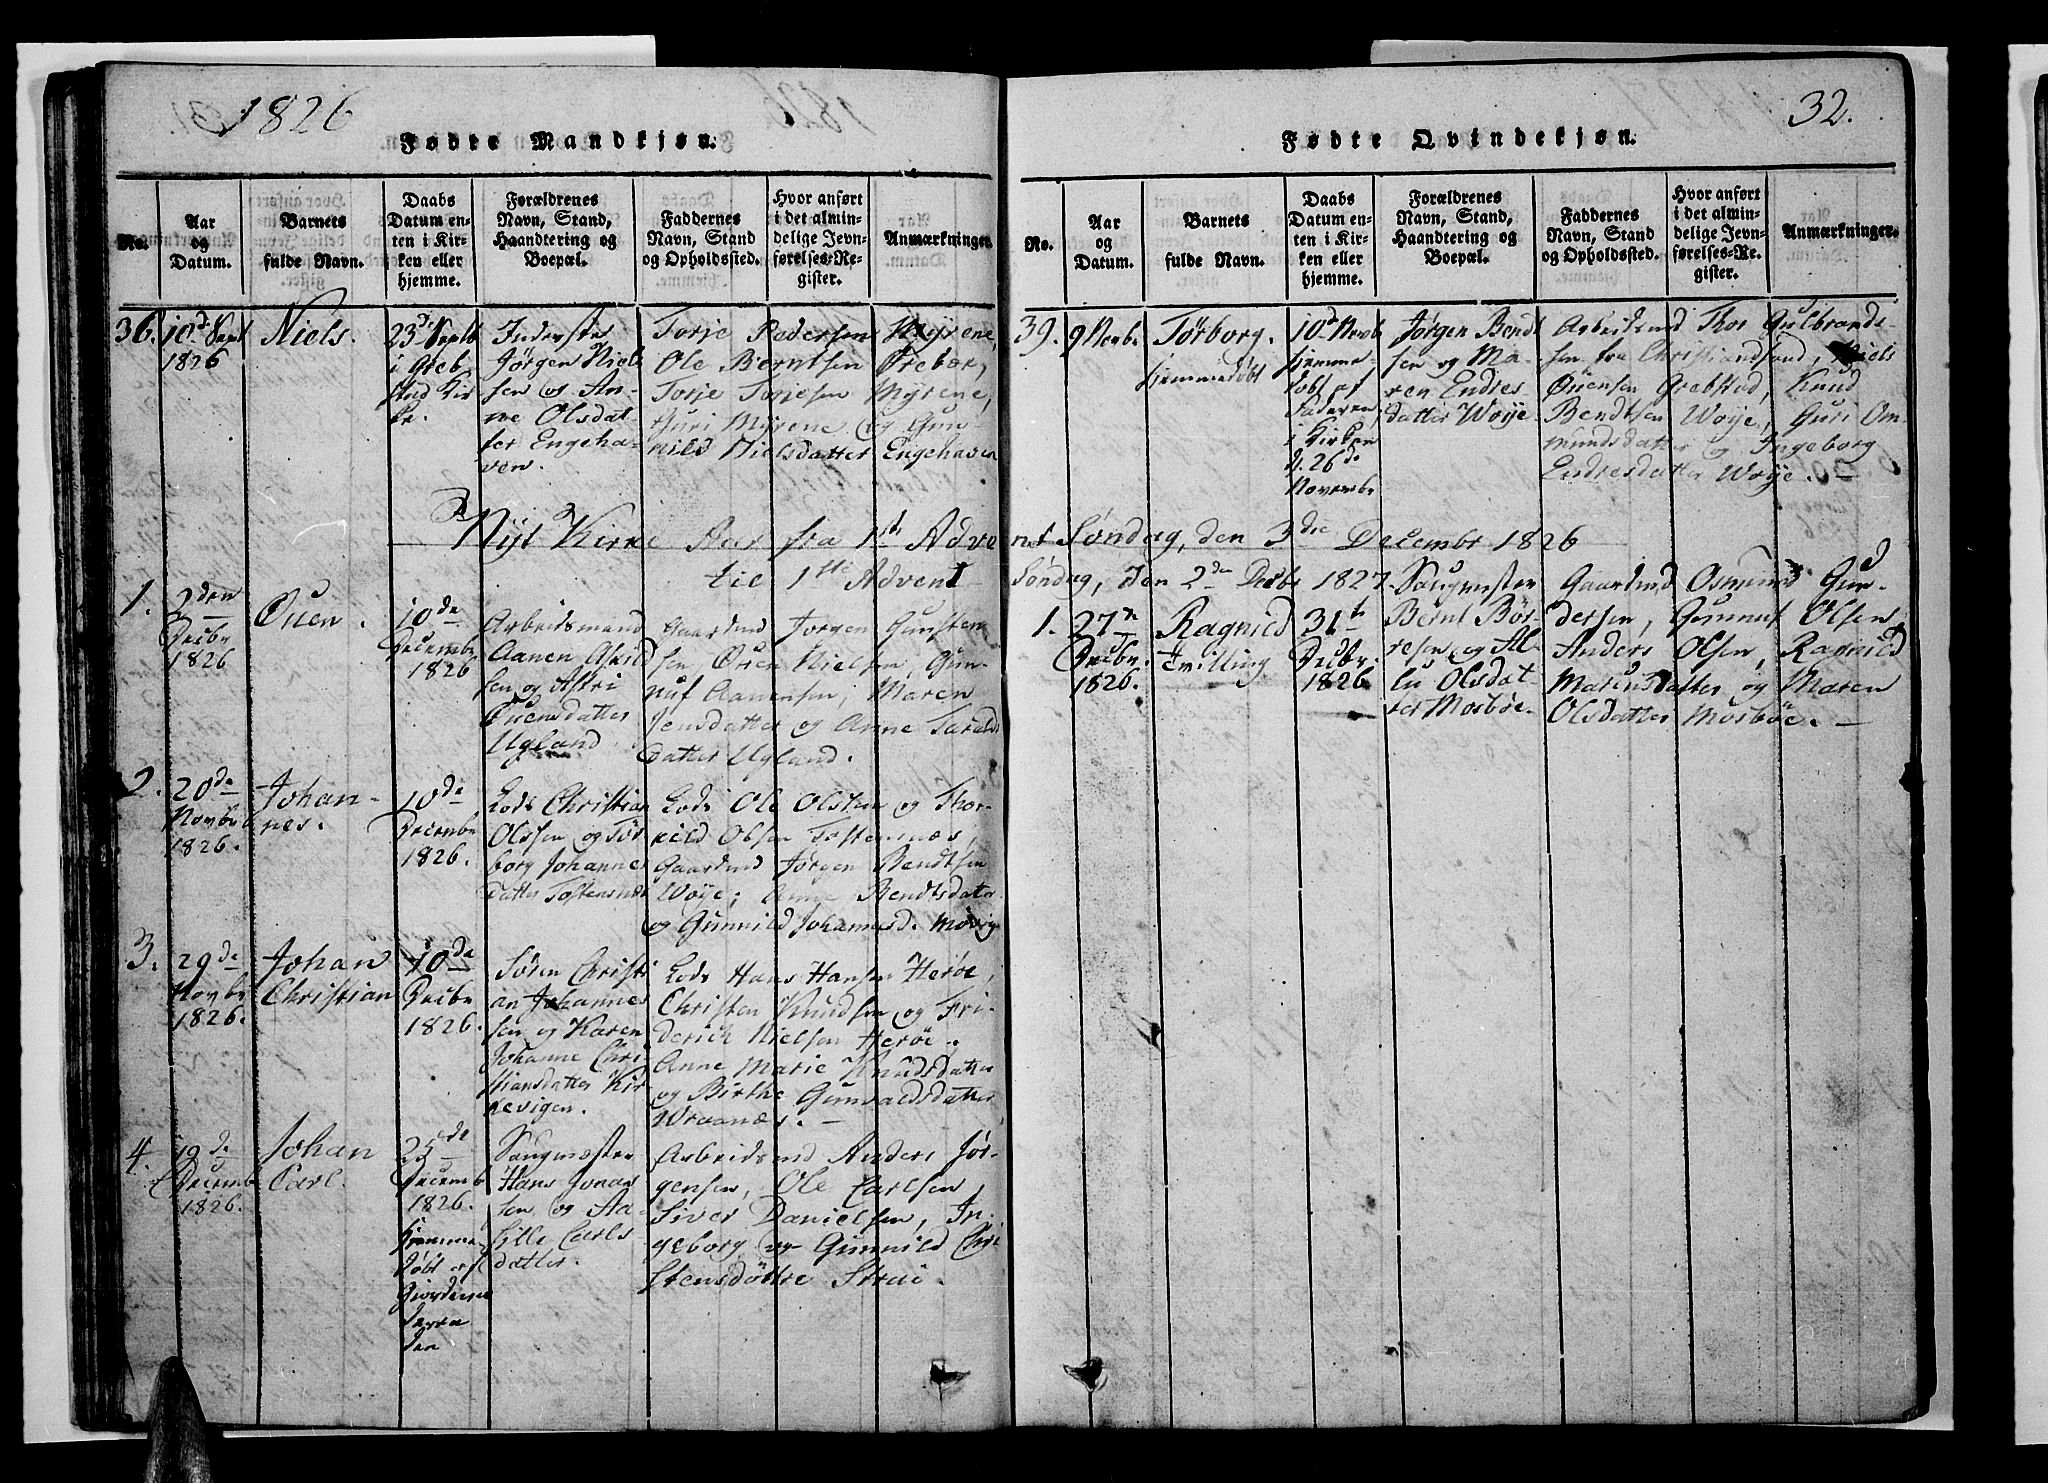 1826
Fødte Mandkjøn.
No.
Aar
og
Datum.
Barnets
fulde Navn.
Daabs
Datum en-
ten i Kir-
ken eller
hjemme.
Forældrenes
Navn, Stand,
Haandtering og
Boepæl.
Faddernes
Navn, Stand
og Opholdssted.
Hvor anført
i det almin-
delige Jevn-
førelses-Re-
gister.
Anmærkninger.
36.
10de Sept
1826
Niels.
23de Septb
i Greb
stad Kir
ke.
Inderster
Jørgen Niels
sen og An-
ne Olsdat-
ter Engeha-
ven.
Torje Pedersen Myrene,
Ole Berntsen Ørebæk,
Torje Torjesen Myrene,
Guri Myrene og Gun-
nild Nielsdatter Engehaven
Nyt Kirke Aar fra 1ste Advent Søndag, den 3die Decembr 1826
til 1ste Advent Søndag, den 2den Decbr 1827.
1.
2den
Decbr
1826
Ouen.
10de
Decembr
1826
Arbeidsmand
Aanen Askild
sen og Askri
Ouensdatter
Ugland.
Gaardmd Jørgen Gunsten
sen, Ouen Nielsen, Gun-
nuf Aanensen, Maren
Jensdatter og Anne Tarald
datter Ugland.
2.
20de
Novbr
1826.
Johan-
nes.
10de
Decembr
1826.
Lods Christian
Olssen og Tør-
borg Johannes
datter Toftenæs
Lods Ole Olsen og Thor-
kild Olsen Toftenæs,
Gaardmd Jørgen Bendtsen
Woije, Anne Bendtsdatter
og Gunnild Johannesd. Møvig
3.
29de
Novbr
1826.
Johan
Christian
10de
Decbr
1826.
Søren Christi
an Johannes
sen og Karen
Johanne Chri-
stiansdatter Kir
kevigen.
Lods Hans Hansen Herøe,
Christen Knudsen og Fri-
derich Nielsen Herøe.
Anne Marie Knudsdatter
og Birthe Gunvaldsdatter
Wraanæs.
4.
19de
Decemb
1826.
Johan
Carl.
25de
Decemb
1826.
hjemme-
døbt af
Giordemo
deren
Saugmester
Hans Jonas
sen og Aa-
sille Carls
datter.
Arbeidsmd Anders Jør-
gensen, Ole Carlsen,
Siver Danielsen, In-
geborg og Gunnild Chri
stensdøttre Strai.
32.
Fødte Qvindekjøn.
No.
Aar
og
Datum.
Barnets
fulde Navn.
Daabs
Datum en-
ten i Kir-
ken eller
hjemme.
Forældrenes
Navn, Stand,
Haandtering og
Boepæl.
Faddernes
Navn, Stand
og Opholdssted.
Hvor anført
i det almin-
delige Jevn-
førelses-Re-
gister.
Anmærkninger.
39.
9 Novbr
Tørborg.
hjemmedøbt
10de Novb
hjemme-
døbt af
Faderen,
i Kirken
d. 26de
Novembr
Jørgen Bendt
sen og Ma-
ren Endres
datter Woije
Arbeidsmd Thor Gulbrands-
sen fra Christiandsand, Niels
Ouensen Grebstad, Knud
Bendtsen Woije, Guri Om-
mundsdatter og Ingeborg
Endresdatter Woije.
1.
27de
Decbr
1826.
Ragnild
Tvilling
31te
Decbr
1826
Saugmester
Bernt Bør-
resen og Al-
lu Olsdat-
ter Mosbøe.
Gaardmd Osmund Gun-
dersen, Gunnut Olsen,
Anders Olsen, Ragnild
Mariusdatter og Maren
Olsdatter Mosbøe.